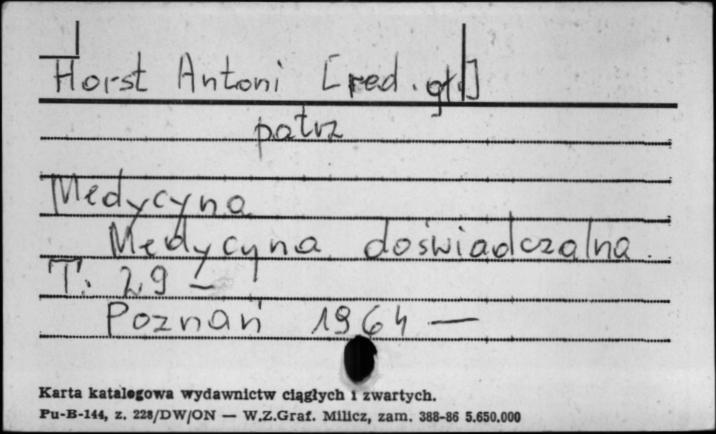 Horst Antoni [red. gł.]
patrz
Medycyna
Medycyna doświadczalna.
T. 29 –
Poznań 1964 —
Karta katalogowa wydawnictw ciągłych i zwartych.
Pu-B-144, z. 228/DW/ON — W.Z.Graf. Milicz, zam. 388-86 5.650.000